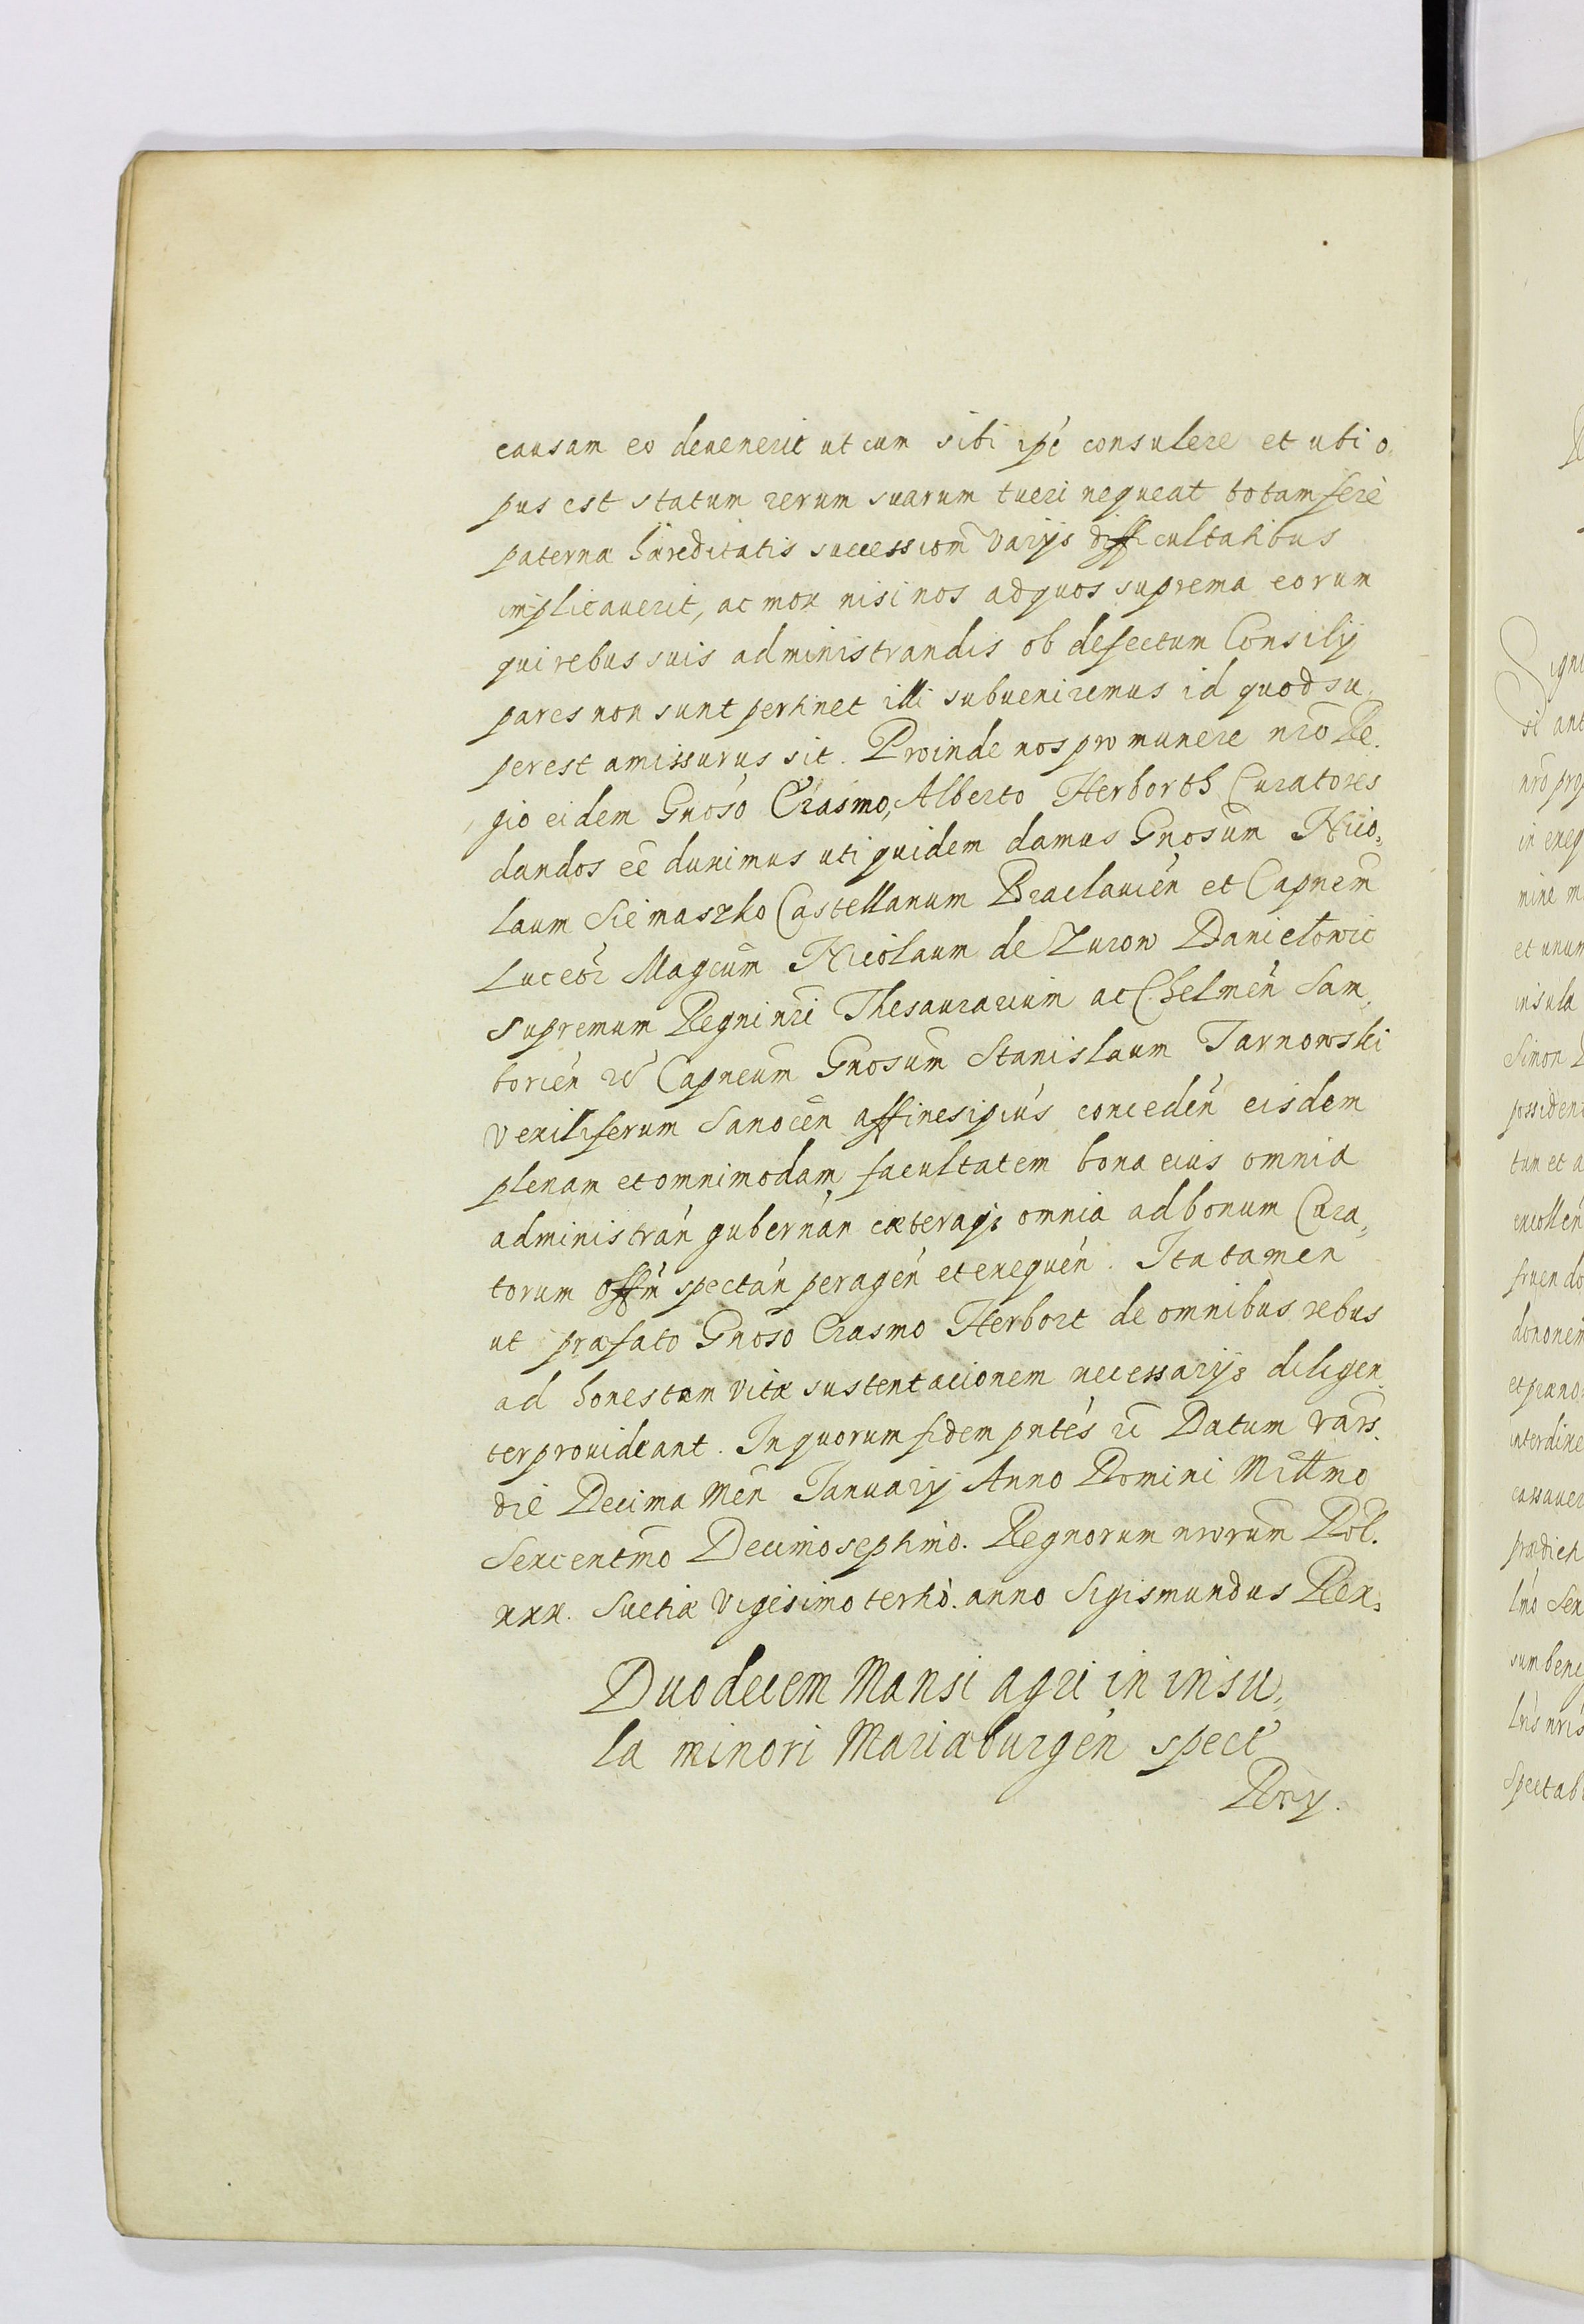 causam eo deuenerit ut cum sibi ipẽ consulere et ubi o,
pus est statum rerum suarum tueri nequeat totam ferè
paternæ hæreditatis successiom̃ varijs difficultatibus
implicauerit, ac mox nisi nos ad quos suprema eorum
qui rebus suis administrandis ob defectum Consilij
pares non sunt pertinet illi subueniremus id quod su,
perest amissurus sit. Proinde nos pro munere nr̃o Re,
gio eidem Gnõso Erasmo, Alberto Herborth Curatores
dandos eẽ duximus uti quidem damus Gnosum̃ Nico,
laum Siemaszko Castellanum Braclauien̄ et Capnem̃
Luceor̃ Magcum̃ Nicolaum de Zurow Daniełowic
supremum Regni nr̃i Thesaurarium ac Chelmen̄ Sam,
borien̄ &c̃ Capneum̃ Gnosum̃ Stanislaum Tarnowski
vexiliferum Sanocen̄ affines ipius̃ conceden̄ eisdem
plenam et omnimodam facultatem bona eius omnia
administran̄ gubernan̄ cæteraq; omnia ad bonum Cura,
torum offm̃ spectan̄ peragen̄ et exequen̄. Ita tamen
ut præfato Gnõso Erasmo Herbort de omnibus rebus
ad honestam vitæ sustentacionem necessarijs diligen,
ter prouideant. In quorum fidem pntẽs &c̃ Datum Vars.
die Decima Men̄ Ianuarij Anno Domini Mittmo
Sexcentmõ Decimoseptimo. Regnorum nrorum̃ Pol.
xxx. Suetiæ vigesimo tertio. anno Sigismundus Rex.
Duodecem Mansi agri in insu,
la minori Mariæburgen̄ spect̃